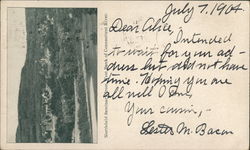 July 7, 1904
Dear Alice,
Intended
to wait for your ad-
dress but did not have
time. Hoping you are
all well I am,
Your cousin,-
Lester M. Bacon
Northfield Seminary
Connecticut River